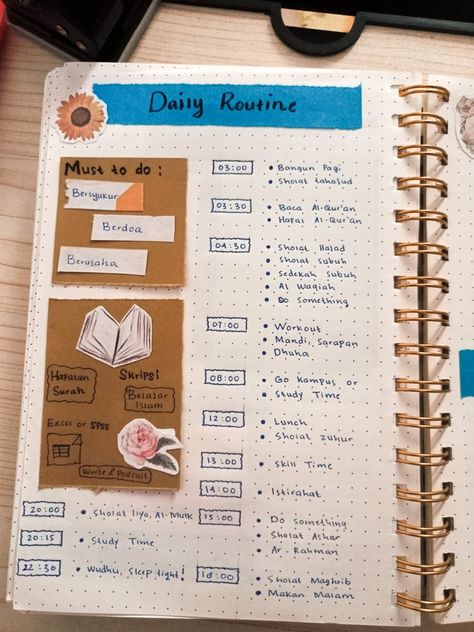 Daily Routine
Must to do :
Bersyukur
Berdoa
Berusaha
Hafalan
Surah
Skripsi
Belajar
Islam
Excel or SPSS
Write & Podcast
03:00
• Bangun Pagi
• Sholat tahajud
03:30
• Baca Al-Qur'an
• Hafal Al-Qur'an
04:30
• Sholat Hajad
• Sholat subuh
• Sedekah subuh
• Al Waqiah
• Do something
07:00
• Workout
• Mandi, Sarapan
• Dhuka
08:00
• Go Kampus or
• Study Time
12:00
• Lunch
• Sholat zuhur
13:00
• Skill Time
14:00
• Istirahat
15:00
• Do something
• Sholat Ashar
• Ar-Rahman
18:00
• Sholat Maghrib
• Makan Malam
20:00
• Sholat Isya, Al-Mulk
20:15
• Study Time
22:30
• Wudhu, sleep tight!